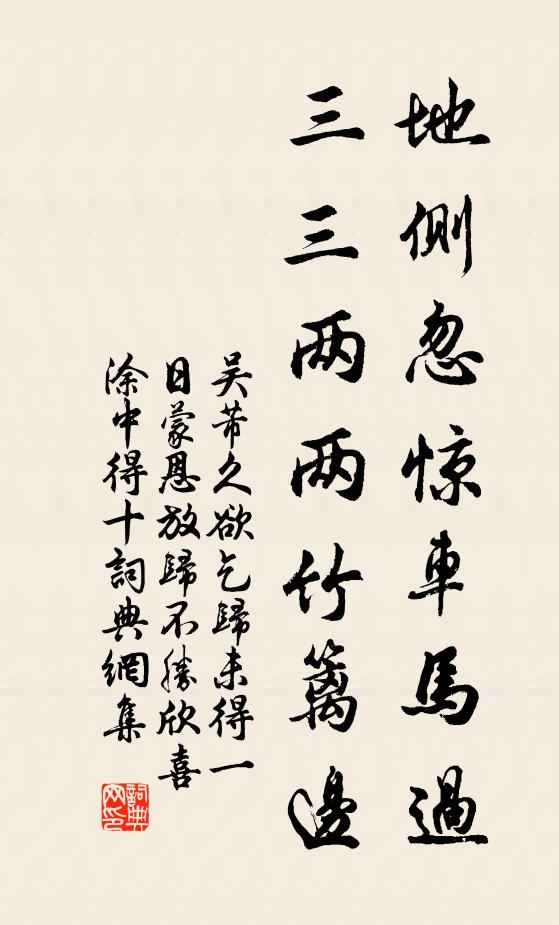 地側忽惊車馬過
三三两两竹籬邊
吴芾久欲乞歸未得一
日蒙恩放歸不勝欣喜
涂中得十詞典網集
詞典网印